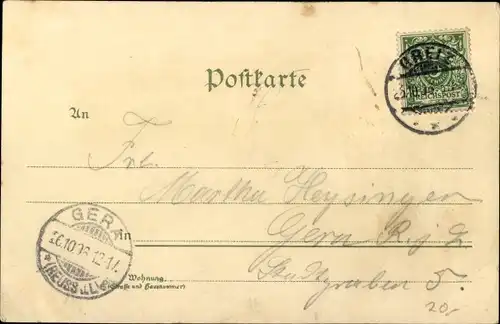 GREIZ
REICHSPOST
Postkarte
An
Frl.
Martha Heysingen
GERA
in Gera R. j. L.
26.10.98.12-1N.
(REUSS j.L.)
Wohnung
(Straße und Hausnummer)
Stadtgraben 5.
20,-